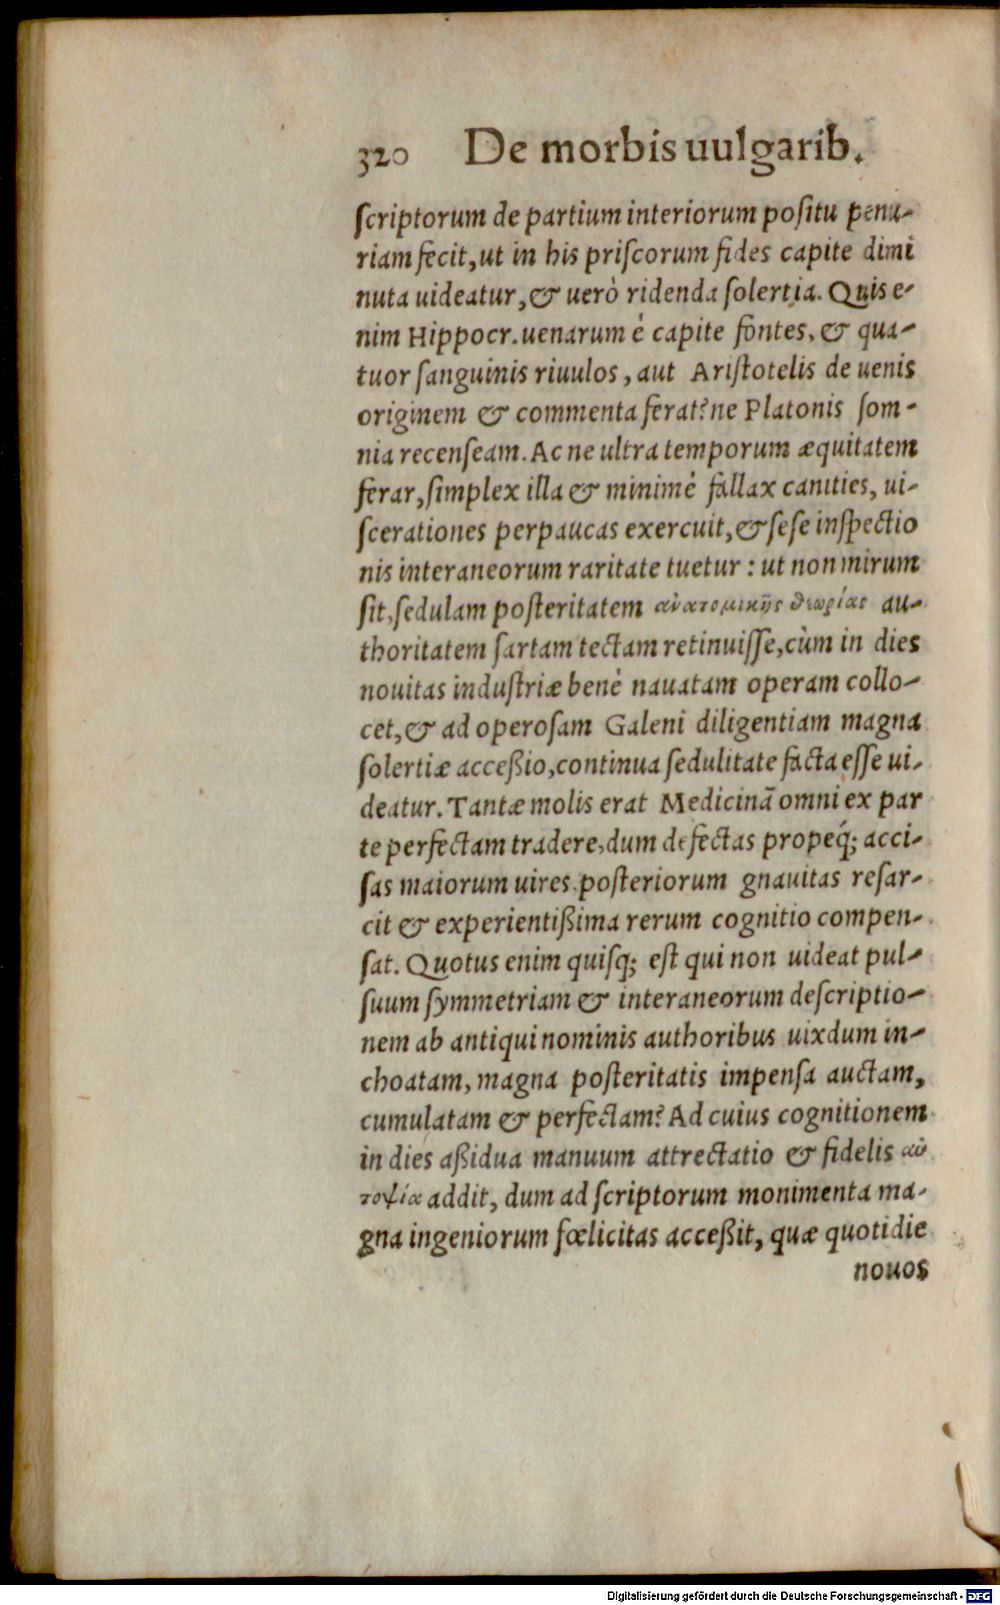 320 De morbis uulgarib.
scriptorum de partium interiorum positu penu-
riam fecit, ut in his priscorum fides capite dimi
nuta uideatur, & uerò ridenda solertia. Quis e-
nim Hippocr. uenarum è capite fontes, & qua-
tuor sanguinis riuulos, aut Aristotelis de uenis
originem & commenta ferat? ne Platonis som-
nia recenseam. Ac ne ultra temporum æquitatem
ferar, simplex illa & minimè fallax canities, ui-
scerationes perpaucas exercuit, & sese inspectio
nis interaneorum raritate tuetur: ut non mirum
sit, sedulam posteritatem ἀνατομικῆς θεωρίας au-
thoritatem sartam tectam retinuisse, cùm in dies
nouitas industriæ benè nauatam operam collo-
cet, & ad operosam Galeni diligentiam magna
solertiæ acceßio, continua sedulitate facta esse ui-
deatur. Tantæ molis erat Medicinã omni ex par
te perfectam tradere, dum defectas propeq́; acci-
sas maiorum uires posteriorum gnauitas resar-
cit & experientißima rerum cognitio compen-
sat. Quotus enim quisq; est qui non uideat pul-
suum symmetriam & interaneorum descriptio-
nem ab antiqui nominis authoribus uixdum in-
choatam, magna posteritatis impensa auctam,
cumulatam & perfectam? Ad cuius cognitionem
in dies aßidua manuum attrectatio & fidelis αὐ
τοψία addit, dum ad scriptorum monimenta ma-
gna ingeniorum fœlicitas acceßit, quæ quotidie
nouos
Digitalisierung gefördert durch die Deutsche Forschungsgemeinschaft - DFG